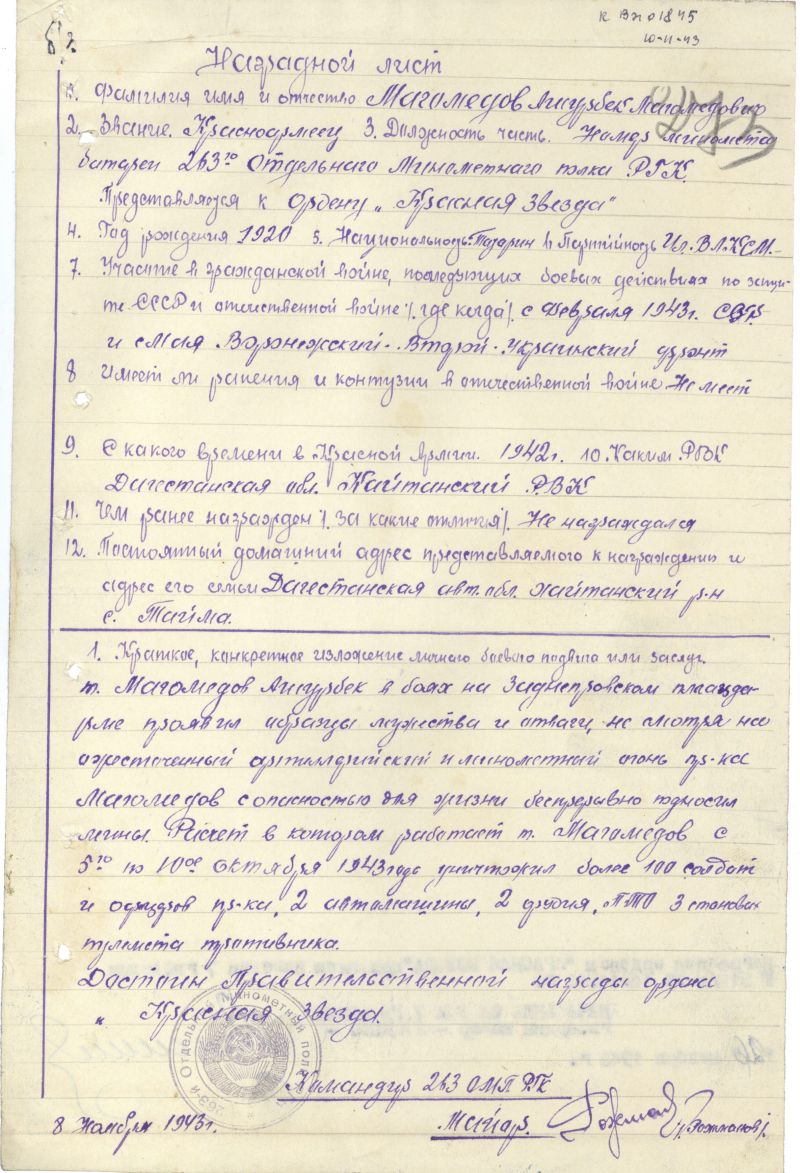 к вх 01845
10-11-43
Наградной лист
1. Фамилия имя и отчество Магомедов Ашурбек Магомедович
2. Звание. Красноармеец 3. Должность часть. Номер миномета
батареи 263го Отдельного Минометного полка РГК.
Представляется к ордену „Красная Звезда"
4. Год рождения 1920 5. Национальность: 6 Партийность Чл. ВЛКСМ.-
7. Участие в гражданской войне, последующих боевых действиях по защи-
те СССР и отечественной войне /. где когда/. с Февраля 1943г.
и с Мая Воронежский-Второй-Украинский фронт
8 Имеет ли ранения и контузии в отечественной войне Не имеет
9. С какого времени в Красной Армии. 1942г. 10. Каким РВК
Дагестанская обл. Кайтанский РВК
11. Чем ранее награжден /. за какие отличия/. Не награждался
12. Постоянный домашний адрес представляемого к награждению и
адрес его семьи Дагестанская авт. обл. Кайтанский р-н
с.
1. Краткое, конкретное изложение личного боевого подвига или заслуг.
т. Магомедов Ашурбек в боях на Заднепровском плацда-
рме проявил образцы мужества и отваги, не смотря на
ожесточенный артиллерийский и минометный огонь пр-ка
Магомедов с опасностью для жизни беспрерывно подносил
мины. Расчет в котором работает т. Магомедов с
5го по 10ое октября 1943 года уничтожил более 100 солдат
и офицеров пр-ка, 2 автомашины, 2 орудия, ПТО 3 становых
пулемета противника.
Достоин Правительственной награды ордена
„Красная Звезда.
Отдельный Минометный полк 263-й
Командир 263 ОМП РГК
8 Ноября 1943г. Майор. /Рожманов/.